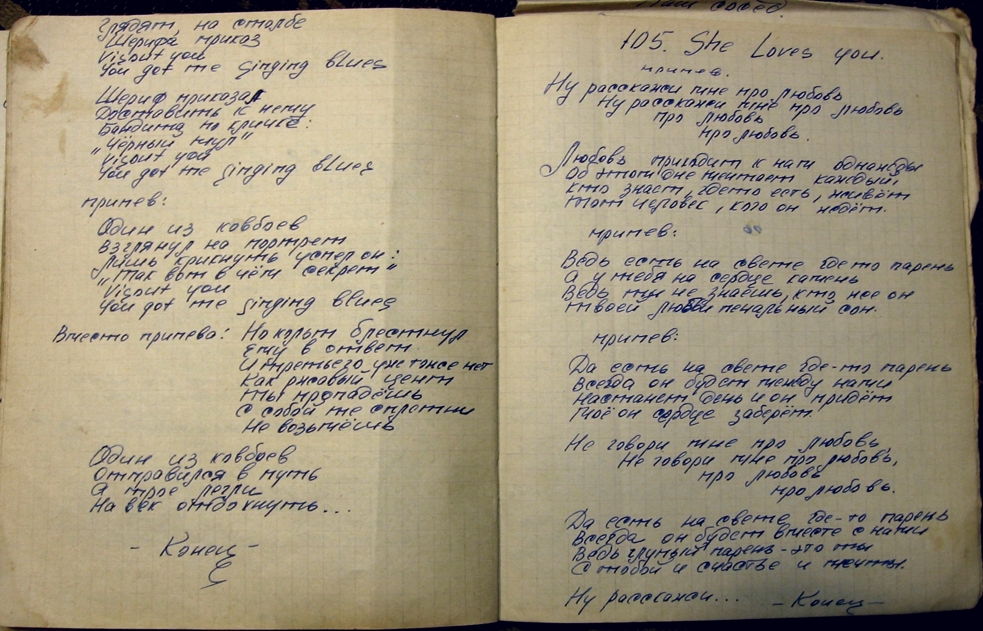 Глядят, на столбе
Шерифа приказ
Visout you
You got me singing blues
Шериф приказал
Доставить к нему
Бандита по кличке:
"Чёрный мул"
Visout you
You got me singing blues
припев:
Один из ковбоев
Взглянул на портрет
Лишь крикнуть успел он:
"Так вот в чём секрет"
Visout you
You got me singing blues
Вместо припева: Но кольт блестнул
Ему в ответ
И третьего уже тоже нет
Как рисовый цент
ты пропадёшь
с собой же сплетни
Не возьмёшь
Один из ковбоев
Отправился в путь
А трое легли
На век отдохнуть...
- Конец -
105. She Loves you.
припев.
Ну расскажи мне про любовь
Ну расскажи мне про любовь
про любовь
про любовь.
Любовь приходит к нам однажды
Об этом дне мечтает каждый,
Кто знает, где то есть, живёт
тот человек, кого он ждёт.
припев:
Ведь есть на свете где то парень
А у тебя на сердце камень
Ведь ты не знаешь, кто же он
твоей любви печальный сон.
припев:
Да есть на свете где-то парень
Всегда он будет между нами
Настанет день и он придёт
твоё он сердце заберёт.
Не говори мне про любовь,
Не говори мне про любовь,
про любовь
про любовь.
Да есть на свете где-то парень
Всегда он будет вместе с нами
Ведь глупый парень - это ты
С тобой и счастье и мечты.
Ну расскажи... - Конец -